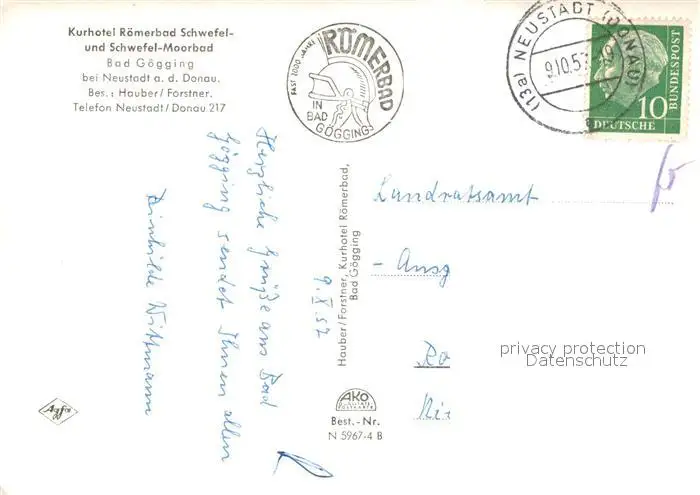 Kurhotel Römerbad Schwefel-
und Schwefel-Moorbad
Bad Gögging
bei Neustadt a. d. Donau.
Bes.: Hauber/Forstner.
Telefon Neustadt/Donau 217
FAST 2000 JAHRE
RÖMERBAD
IN
BAD
GÖGGING
(13a) NEUSTADT (DONAU)
9.10.57
10
DEUTSCHE
BUNDESPOST
Herzliche Grüße aus Bad
Gögging sendet Ihnen allen
Wittmann
9.X.57
Hauber/Forstner, Kurhotel Römerbad,
Bad Gögging
Landratsamt
- Ausg
Ro
Ni
privacy protection
Datenschutz
Agfa
AKO
QUALITÄTS
POSTKARTE
Best.-Nr.
N 5967-4 B